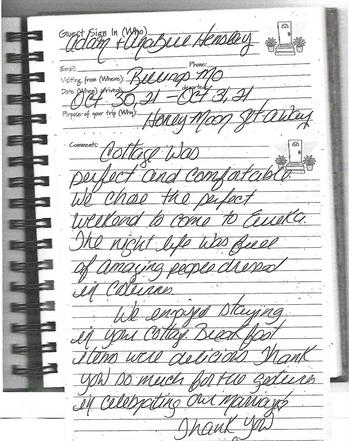 Guest Sign In (Who)
Adam + Hensley
Email: Phone:
Visiting from (Where): Billings Mo
Date (When) Arrived: Departed:
Oct 30, 21 - Oct 31, 21
Purpose of your trip (Why) Honey Moon get away
Comments: Cottage was
perfect and comfortable
We chose the perfect
weekend to come to Eureka.
The night life was full
of amazing people dressed
in
We enjoyed staying
in your Cottage Breakfast
items were delicious Thank
you so much for the
in celebrating our marriage
Thank you